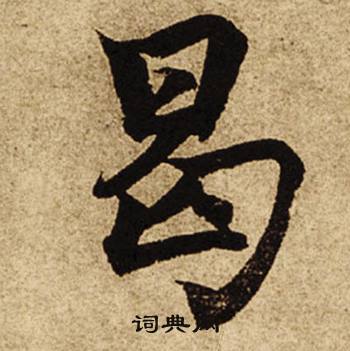 曷
词典网